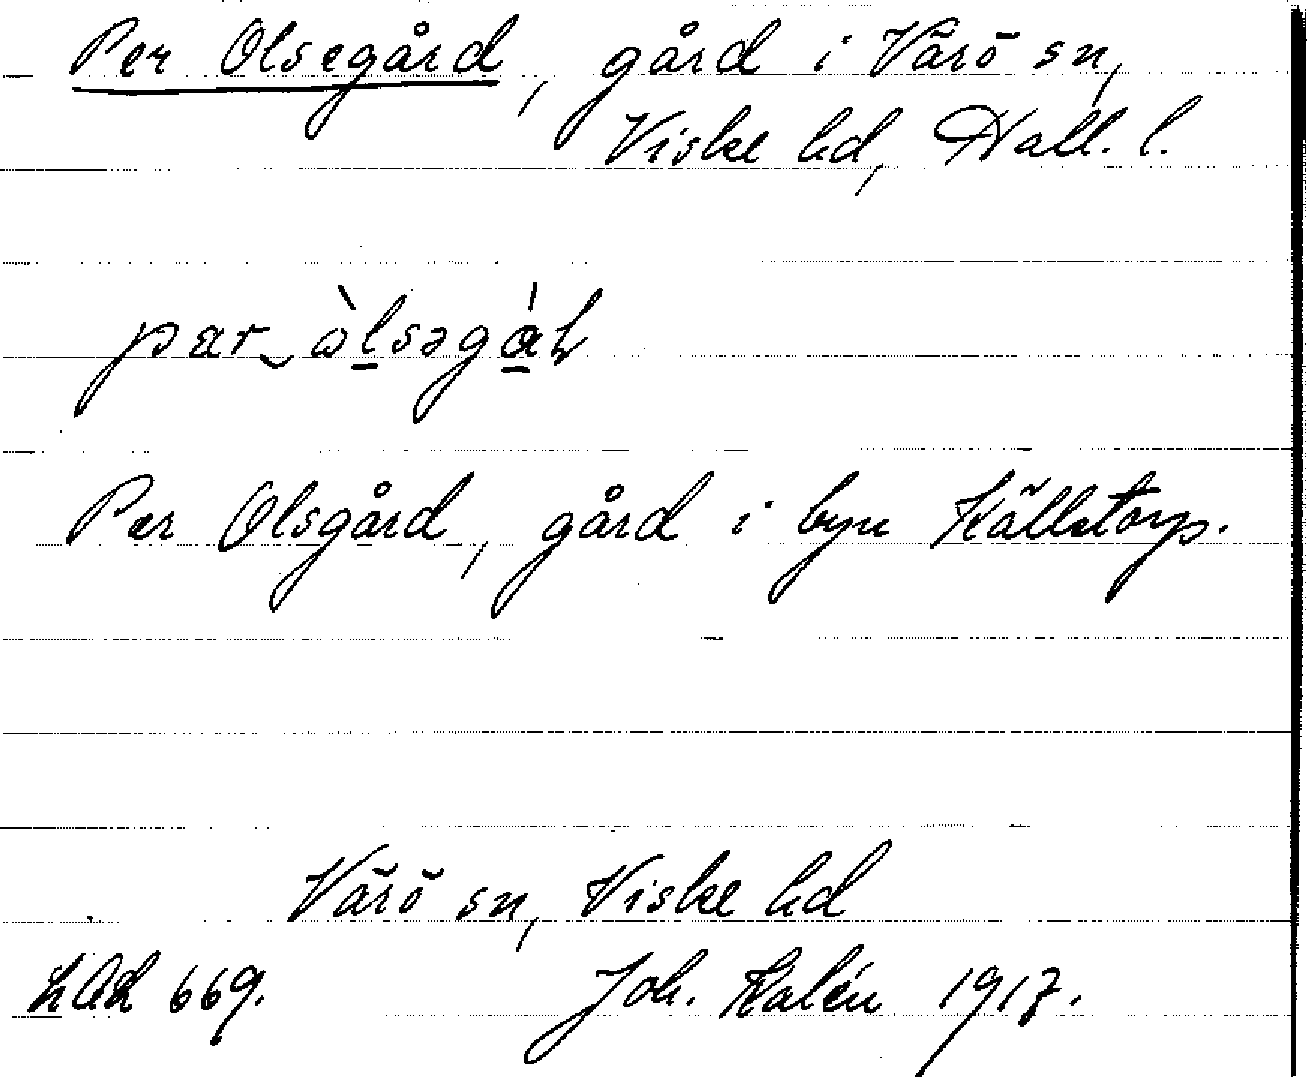 Per Olsegård, gård i Värö sn,
Viske hd, Hall. l.
Per Olsgård, gård i byn Källstorp.
Värö sn, Viske hd
LAL 669. Joh. Kalén 1917.